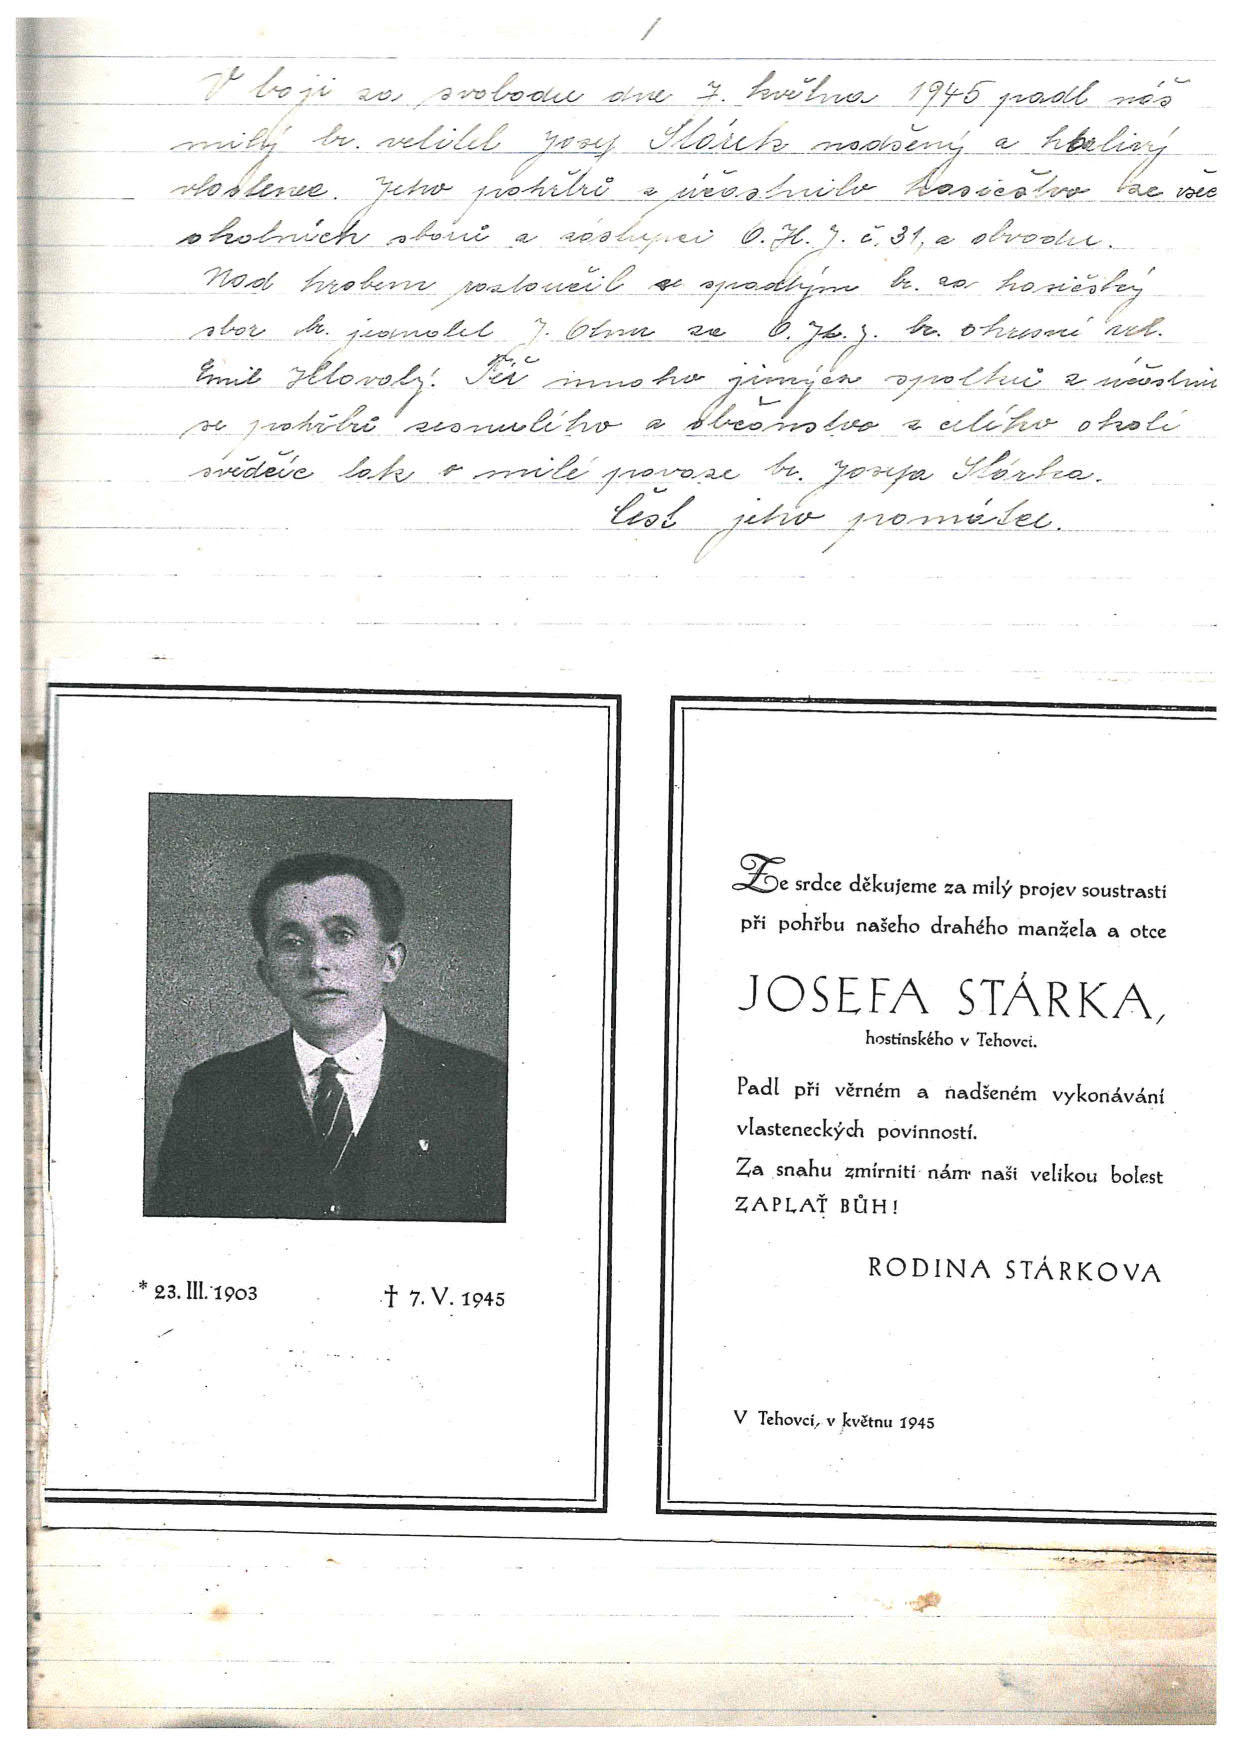 V boji za svobodu dne 7. května 1945 padl náš
milý br. velitel Josef Stárek nadšený a horlivý
vlastenec. Jeho pohřbů z účastnilo hasičstvo ze všec
okolních sborů a zástupci O. H. J. č. 31, a obvodu.
Nad hrobem rozloučil se spadlým br. za hasičský
sbor br. jednatel J. za O. H. J. br. okresní vel.
Emil Též mnoho jiných spolků z účastnil
se pohřbů zesnulého a občanstvo z celého okolí
svědčíc tak o milé povaze br. Josefa Stárka.
Čest jeho památce.
* 23. III. 1903 † 7. V. 1945
Ze srdce děkujeme za milý projev soustrasti
při pohřbu našeho drahého manžela a otce
JOSEFA STÁRKA,
hostinského v Tehovci.
Padl při věrném a nadšeném vykonávání
vlasteneckých povinností.
Za snahu zmírniti nám naši velikou bolest
ZAPLAŤ BŮH!
RODINA STÁRKOVA
V Tehovci, v květnu 1945